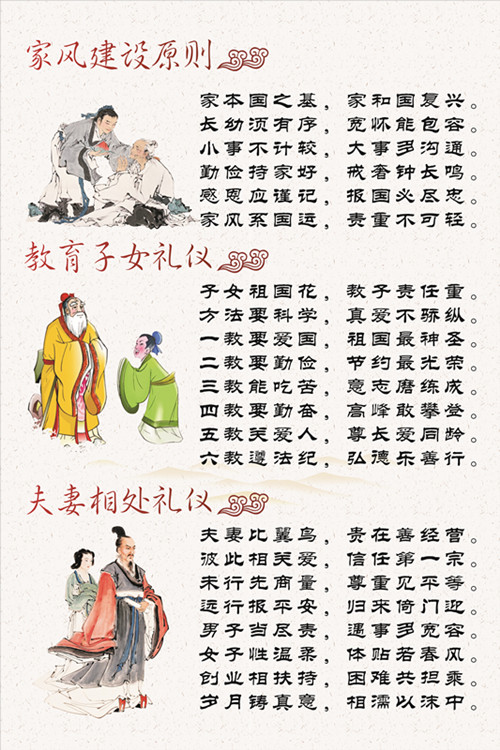 家风建设原则
家本国之基，家和国复兴。
长幼须有序，宽怀能包容。
小事不计较，大事多沟通。
勤俭持家好，戒奢钟长鸣。
感恩应谨记，报国必尽忠。
家风系国运，责重不可轻。
教育子女礼仪
子女祖国花，教子责任重。
方法要科学，真爱不骄纵。
一教要爱国，祖国最神圣。
二教要勤俭，节约最光荣。
三教能吃苦，意志磨练成。
四教要勤奋，高峰敢攀登。
五教关爱人，尊长爱同龄。
六教遵法纪，弘德乐善行。
夫妻相处礼仪
夫妻比翼鸟，贵在善经营。
彼此相关爱，信任第一宗。
未行先商量，尊重见平等。
远行报平安，归来倚门迎。
男子当尽责，遇事多宽容。
女子性温柔，体贴若春风。
创业相扶持，困难共担乘。
岁月铸真意，相濡以沫中。